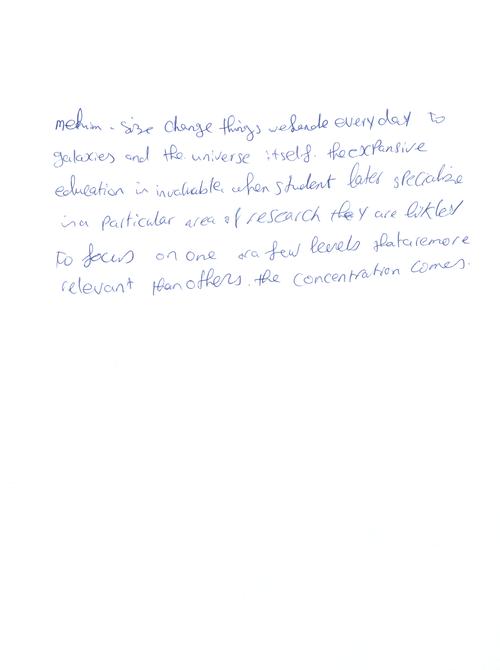 medium-size change things wehandle everyday to
galaxies and the universe itself. the expansive
education in invaluable when student later specialize
in a particular area of research they are likley
to focus on one or a few levels that are more
relevant than others. the concentration comes.